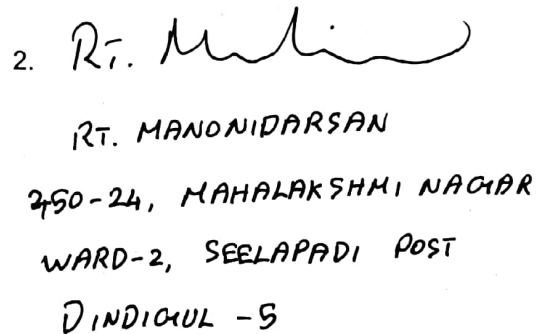 2. RT.
RT. MANONIDARSAN
250-24, MAHALAKSHMI NAGAR
WARD-2, SEELAPADI POST
DINDIGUL -5